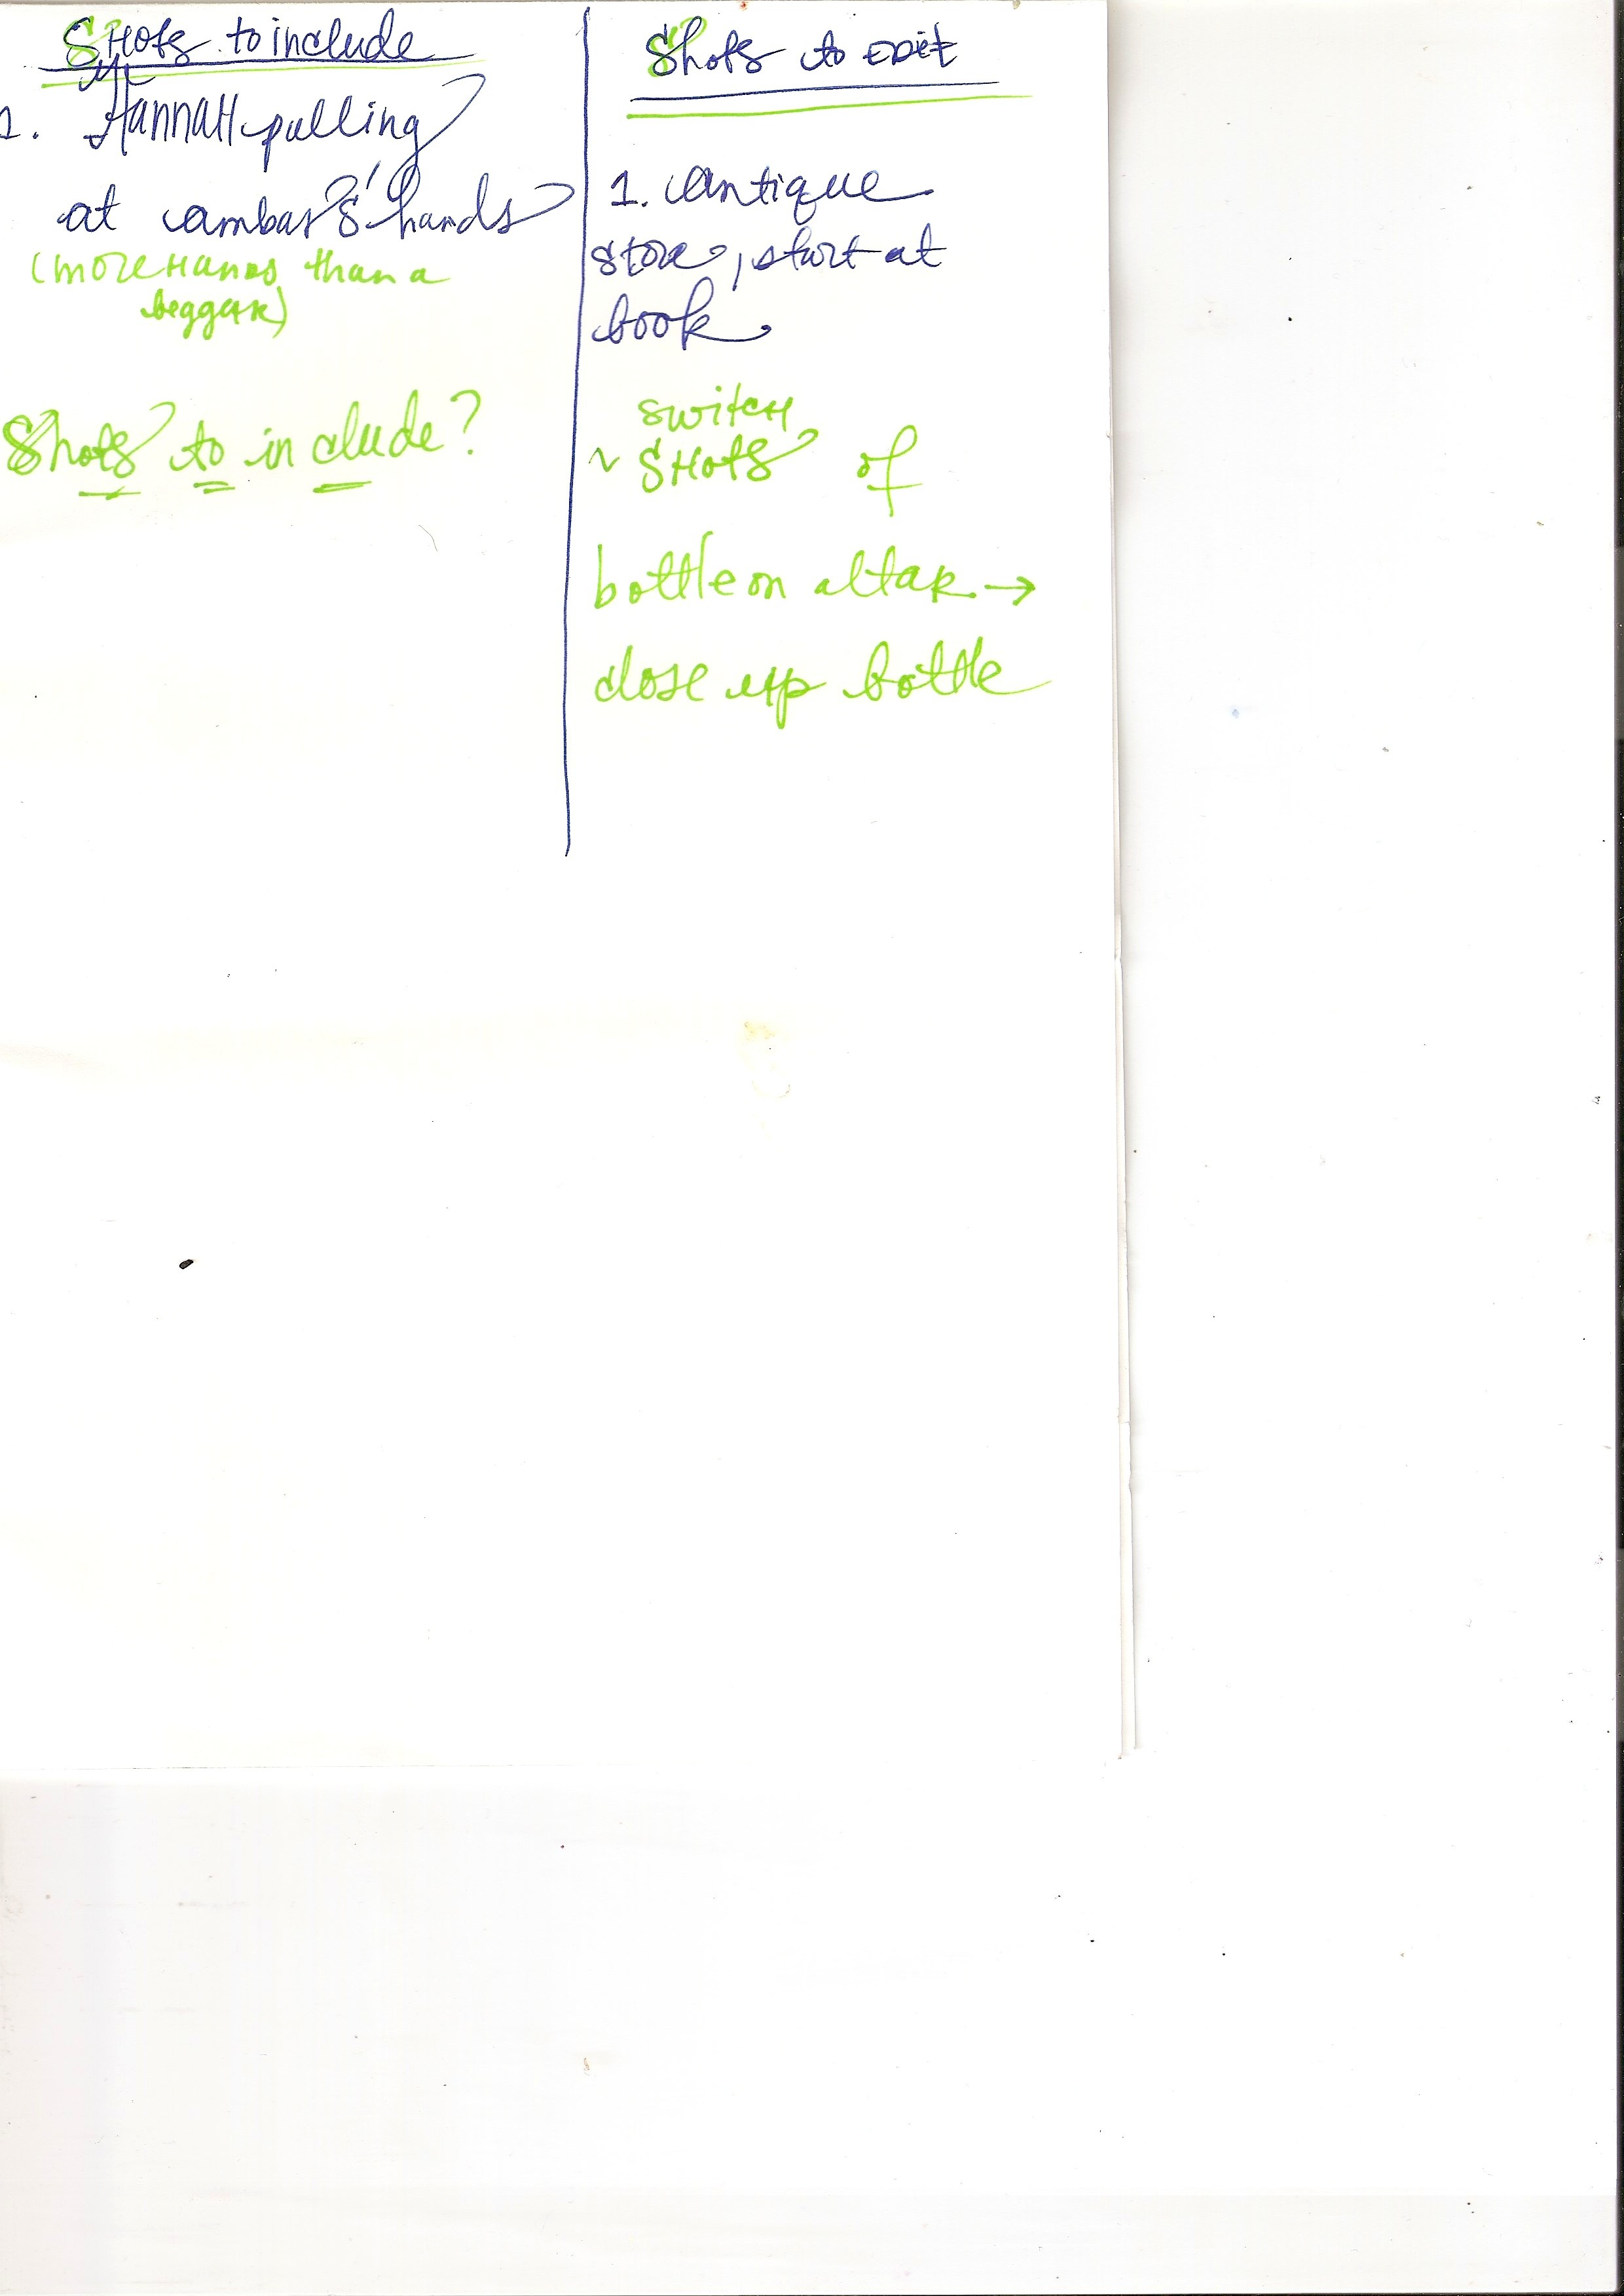 Shots to include
1. Hannah pulling
at ambar's hands
(more hands than a
beggar)
Shots to include?
Shots to edit
1. antique
store, start at
book
switch
~ shots of
bottle on altar →
close up bottle